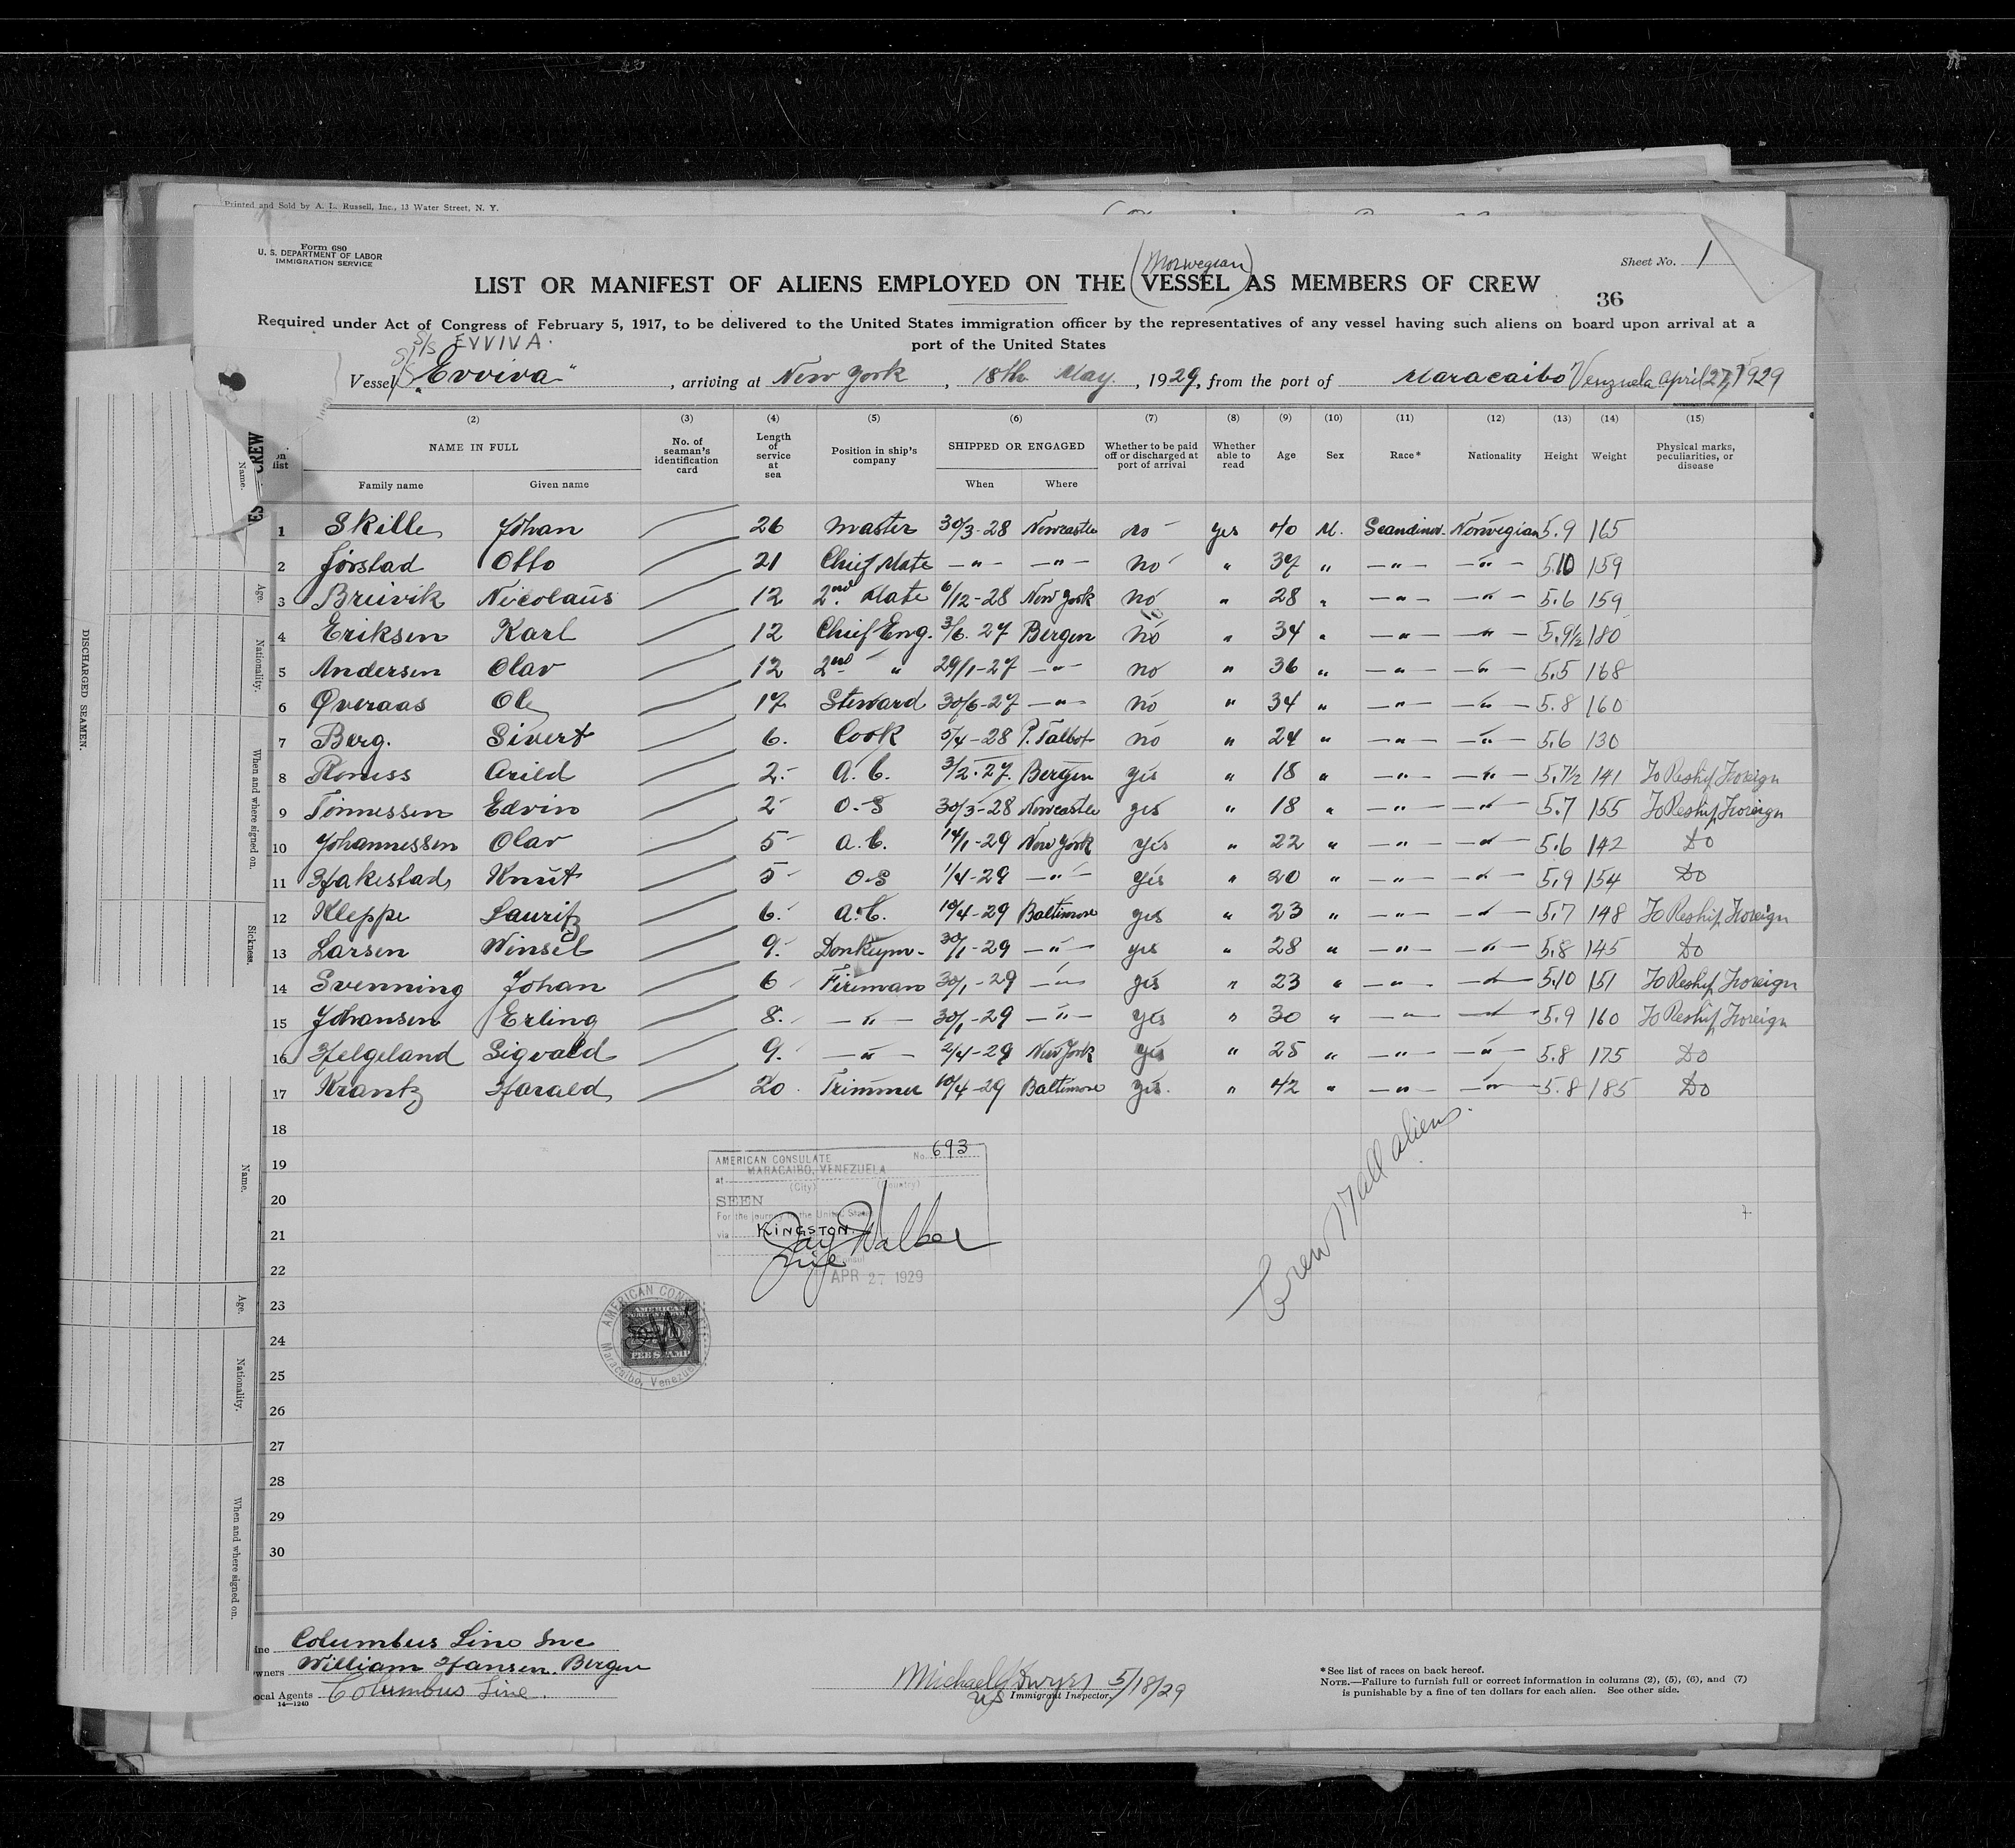 Printed and Sold by A. L. Russell, Inc., 13 Water Street, N. Y.
Form 680
U. S. DEPARTMENT OF LABOR
IMMIGRATION SERVICE
Sheet No. 1
(Norwegian)
LIST OR MANIFEST OF ALIENS EMPLOYED ON THE VESSEL AS MEMBERS OF CREW
36
Required under Act of Congress of February 5, 1917, to be delivered to the United States immigration officer by the representatives of any vessel having such aliens on board upon arrival at a
port of the United States
S/S EVVIVA.
Vessel S/S "Evviva", arriving at New York, 18th May, 1929, from the port of Maracaibo Venzuela April 27, 1929
(2) (3) (4) (5) (6) (7) (8) (9) (10) (11) (12) (13) (14) (15)
on list
NAME IN FULL
Family name Given name
No. of seaman's identification card
Length of service at sea
Position in ship's company
SHIPPED OR ENGAGED
When Where
Whether to be paid off or discharged at port of arrival
Whether able to read
Age
Sex
Race*
Nationality
Height
Weight
Physical marks, peculiarities, or disease
1 Skille Johan 26 Master 30/3-28 Newcastle no yes 40 M. Scandinav. Norwegian 5.9 165
2 Jörstad Otto 21 Chief Mate —"— —"— no " 37 " —"— —"— 5.10 159
3 Breivik Nicolaus 12 2nd Mate 6/12-28 New York no " 28 " —"— —"— 5.6 159
4 Eriksen Karl 12 Chief Eng. 3/6.27 Bergen no " 34 " —"— —"— 5.9½ 180
5 Andersen Olav 12 2nd " 29/1-27 —"— no " 36 " —"— —"— 5.5 168
6 Øveraas Ole 17 Steward 30/6-27 —"— no " 34 " —"— —"— 5.8 160
7 Berg. Sivert 6. Cook 5/4-28 P. Talbot no " 24 " —"— —"— 5.6 130
8 Arild 2.- A.b. 3/2.27. Bergen yes " 18 " —"— —"— 5.7½ 141 To Reship Foreign
9 Tönnessen Edvin 2- O.-S 30/3-28 Newcastle yes " 18 " —"— —"— 5.7 155 To Reship Foreign
10 Johannessen Olav 5- A.b. 14/1-29 New York yes " 22 " —"— —"— 5.6 142 Do
11 Hakestad Knut 5- O-S 1/4-29 —"— yes " 20 " —"— —"— 5.9 154 Do
12 Kleppe Lauritz 6.- A.b. 10/4-29 Baltimore yes " 23 " —"— —"— 5.7 148 To Reship Foreign
13 Larsen Winsel 9.- Donkeym- 30/1-29 —"— yes " 28 " —"— —"— 5.8 145 Do
14 Svenning Johan 6 Fireman 30/1-29 —"— yes " 23 " —"— —"— 5.10 151 To Reship Foreign
15 Johansen Erling 8. —"— 30/1-29 —"— yes " 30 " —"— —"— 5.9 160 To Reship Foreign
16 Helgeland Sigvald 9. —"— 2/4-29 New York yes " 25 " —"— —"— 5.8 175 Do
17 Krantz Harald 20. Trimmer 10/4-29 Baltimore yes. " 42 " —"— —"— 5.8 185 Do
18
19
20
21
22
23
24
25
26
27
28
29
30
AMERICAN CONSULATE No. 693
at MARACAIBO, VENEZUELA
(City) (Country)
SEEN
For the journey to the United States
via KINGSTON
Jay Walker
Vice Consul
APR 27 1929
AMERICAN CONSULATE
Maracaibo, Venezuela
AMERICAN
FEE STAMP
Crew 17 all aliens.
Columbus Line Inc
Owners William Hansen. Bergen
Local Agents Columbus Line.
14—1240
5/18/29
US Immigrant Inspector.
*See list of races on back hereof.
NOTE.—Failure to furnish full or correct information in columns (2), (5), (6), and (7)
is punishable by a fine of ten dollars for each alien. See other side.
DISCHARGED SEAMEN.
Name.
Age.
Nationality.
When and where signed on.
Sickness.
Name.
Age.
Nationality.
When and where signed on.